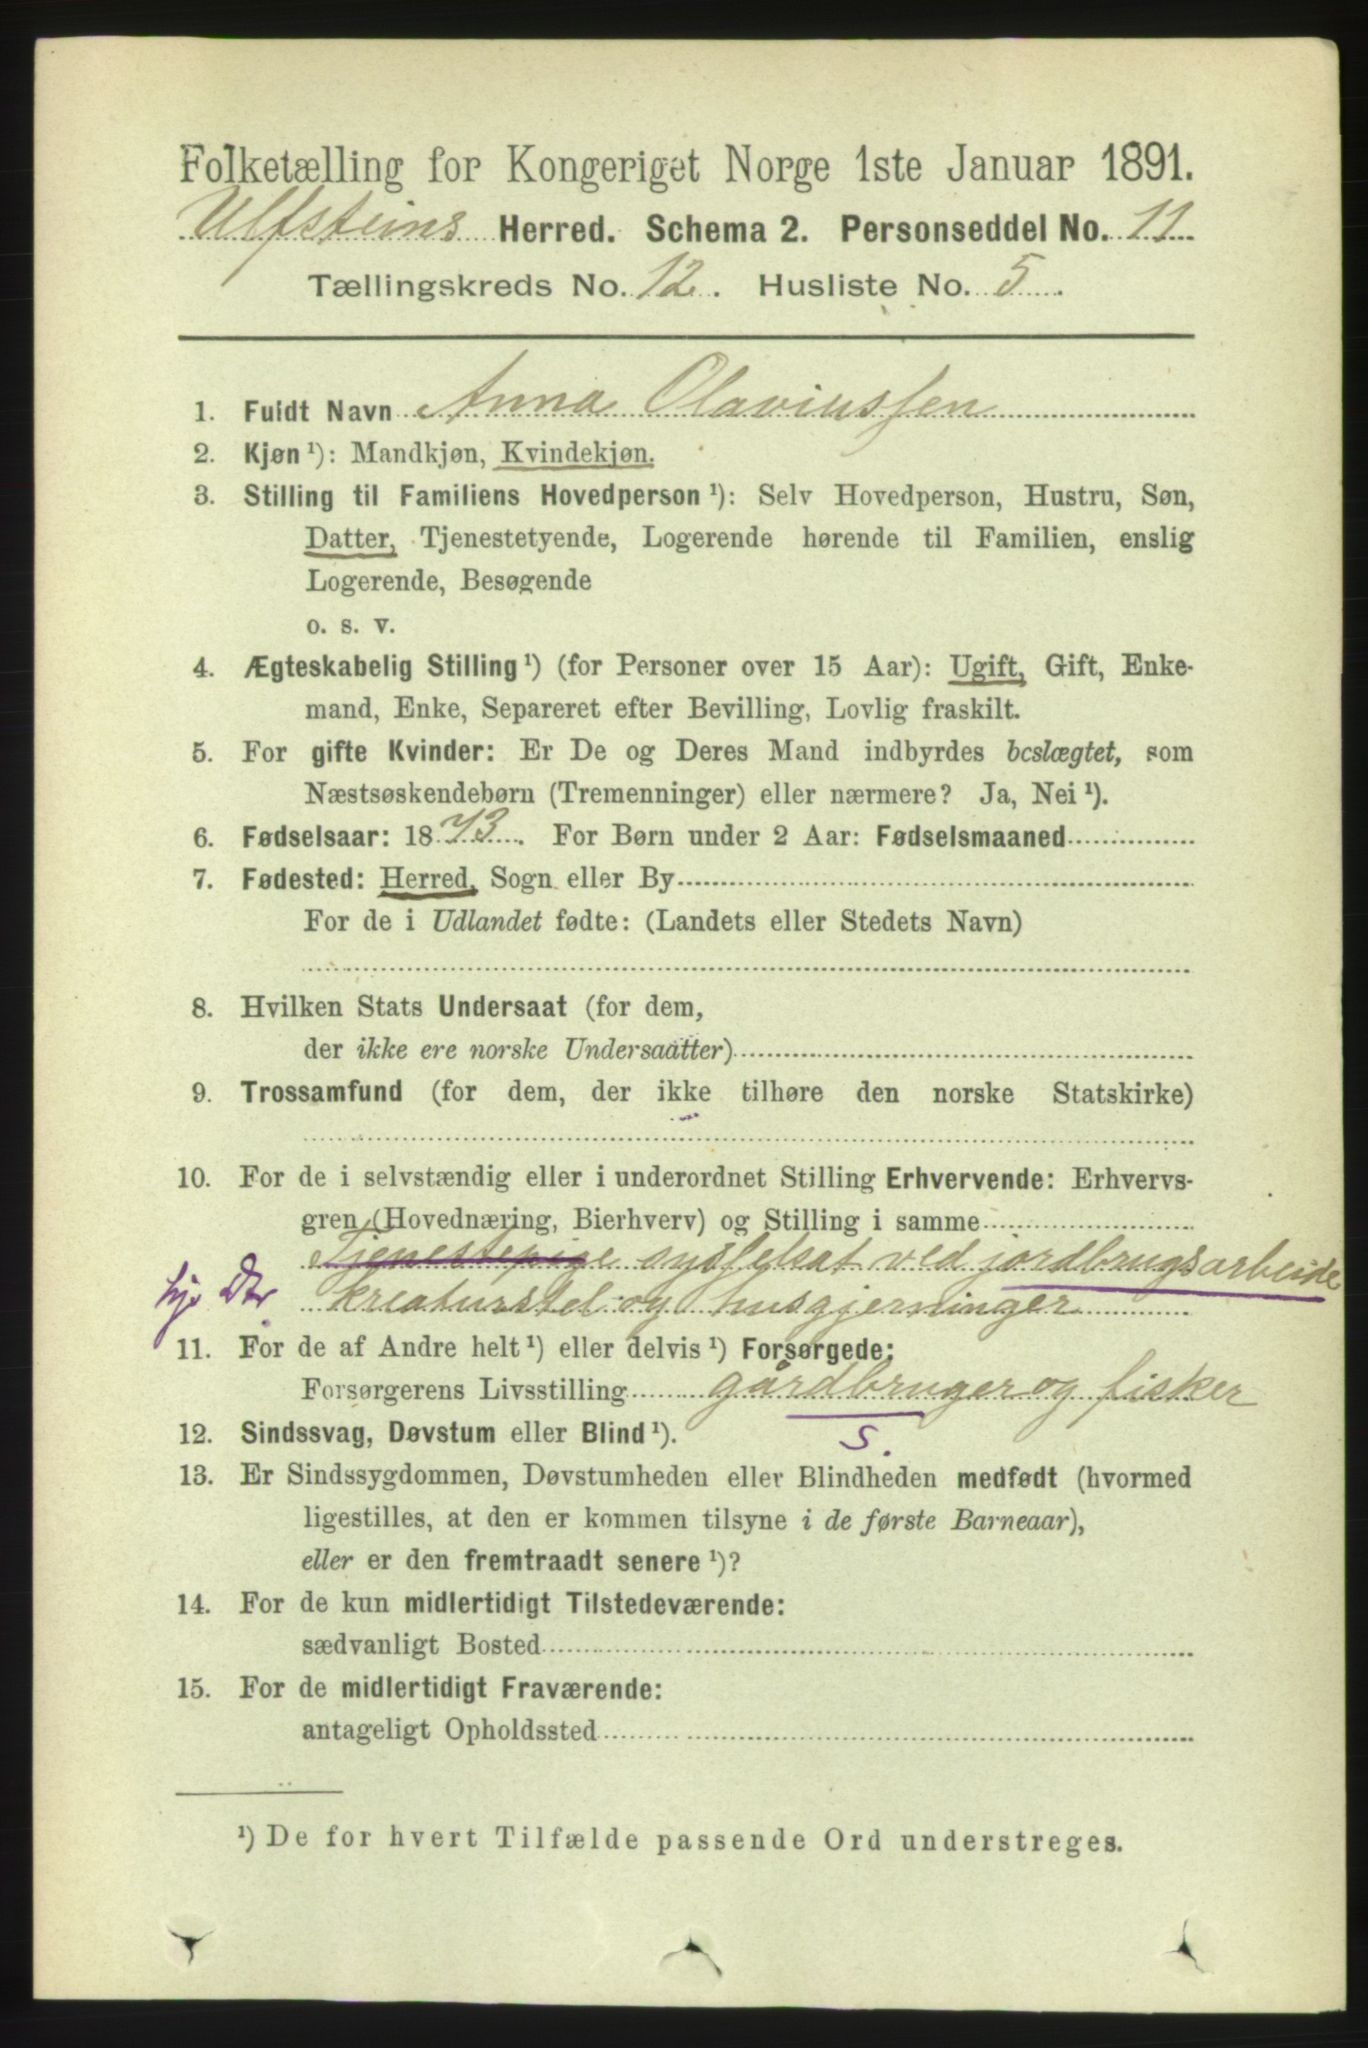 Folketælling for Kongeriget Norge 1ste Januar 1891.
Ulfsteins Herred. Schema 2. Personseddel No. 11
Tællingskreds No. 12. Husliste No. 5.
1. Fuldt Navn Anna Olaviussen
2. Kjøn ¹): Mandkjøn, Kvindekjøn.
3. Stilling til Familiens Hovedperson ¹): Selv Hovedperson, Hustru, Søn,
Datter, Tjenestetyende, Logerende hørende til Familien, enslig
Logerende, Besøgende
o. s. v.
4. Ægteskabelig Stilling ¹) (for Personer over 15 Aar): Ugift, Gift, Enke-
mand, Enke, Separeret efter Bevilling, Lovlig fraskilt.
5. For gifte Kvinder: Er De og Deres Mand indbyrdes beslægtet, som
Næstsøskendebørn (Tremenninger) eller nærmere? Ja, Nei ¹).
6. Fødselsaar: 1873. For Børn under 2 Aar: Fødselsmaaned
7. Fødested: Herred, Sogn eller By
For de i Udlandet fødte: (Landets eller Stedets Navn)
8. Hvilken Stats Undersaat (for dem,
der ikke ere norske Undersaatter)
9. Trossamfund (for dem, der ikke tilhøre den norske Statskirke)
10. For de i selvstændig eller i underordnet Stilling Erhvervende: Erhvervs-
gren (Hovednæring, Bierhverv) og Stilling i samme
Tjenestepige sysselsat ved jordbrugsarbeide
hj. Dtr kreaturstel og husgjerninger
11. For de af Andre helt ¹) eller delvis ¹) Forsørgede:
Forsørgerens Livsstilling gårdbruger og fisker
S.
12. Sindssvag, Døvstum eller Blind ¹).
13. Er Sindssygdommen, Døvstumheden eller Blindheden medfødt (hvormed
ligestilles, at den er kommen tilsyne i de første Barneaar),
eller er den fremtraadt senere ¹)?
14. For de kun midlertidigt Tilstedeværende:
sædvanligt Bosted
15. For de midlertidigt Fraværende:
antageligt Opholdssted
¹) De for hvert Tilfælde passende Ord understreges.